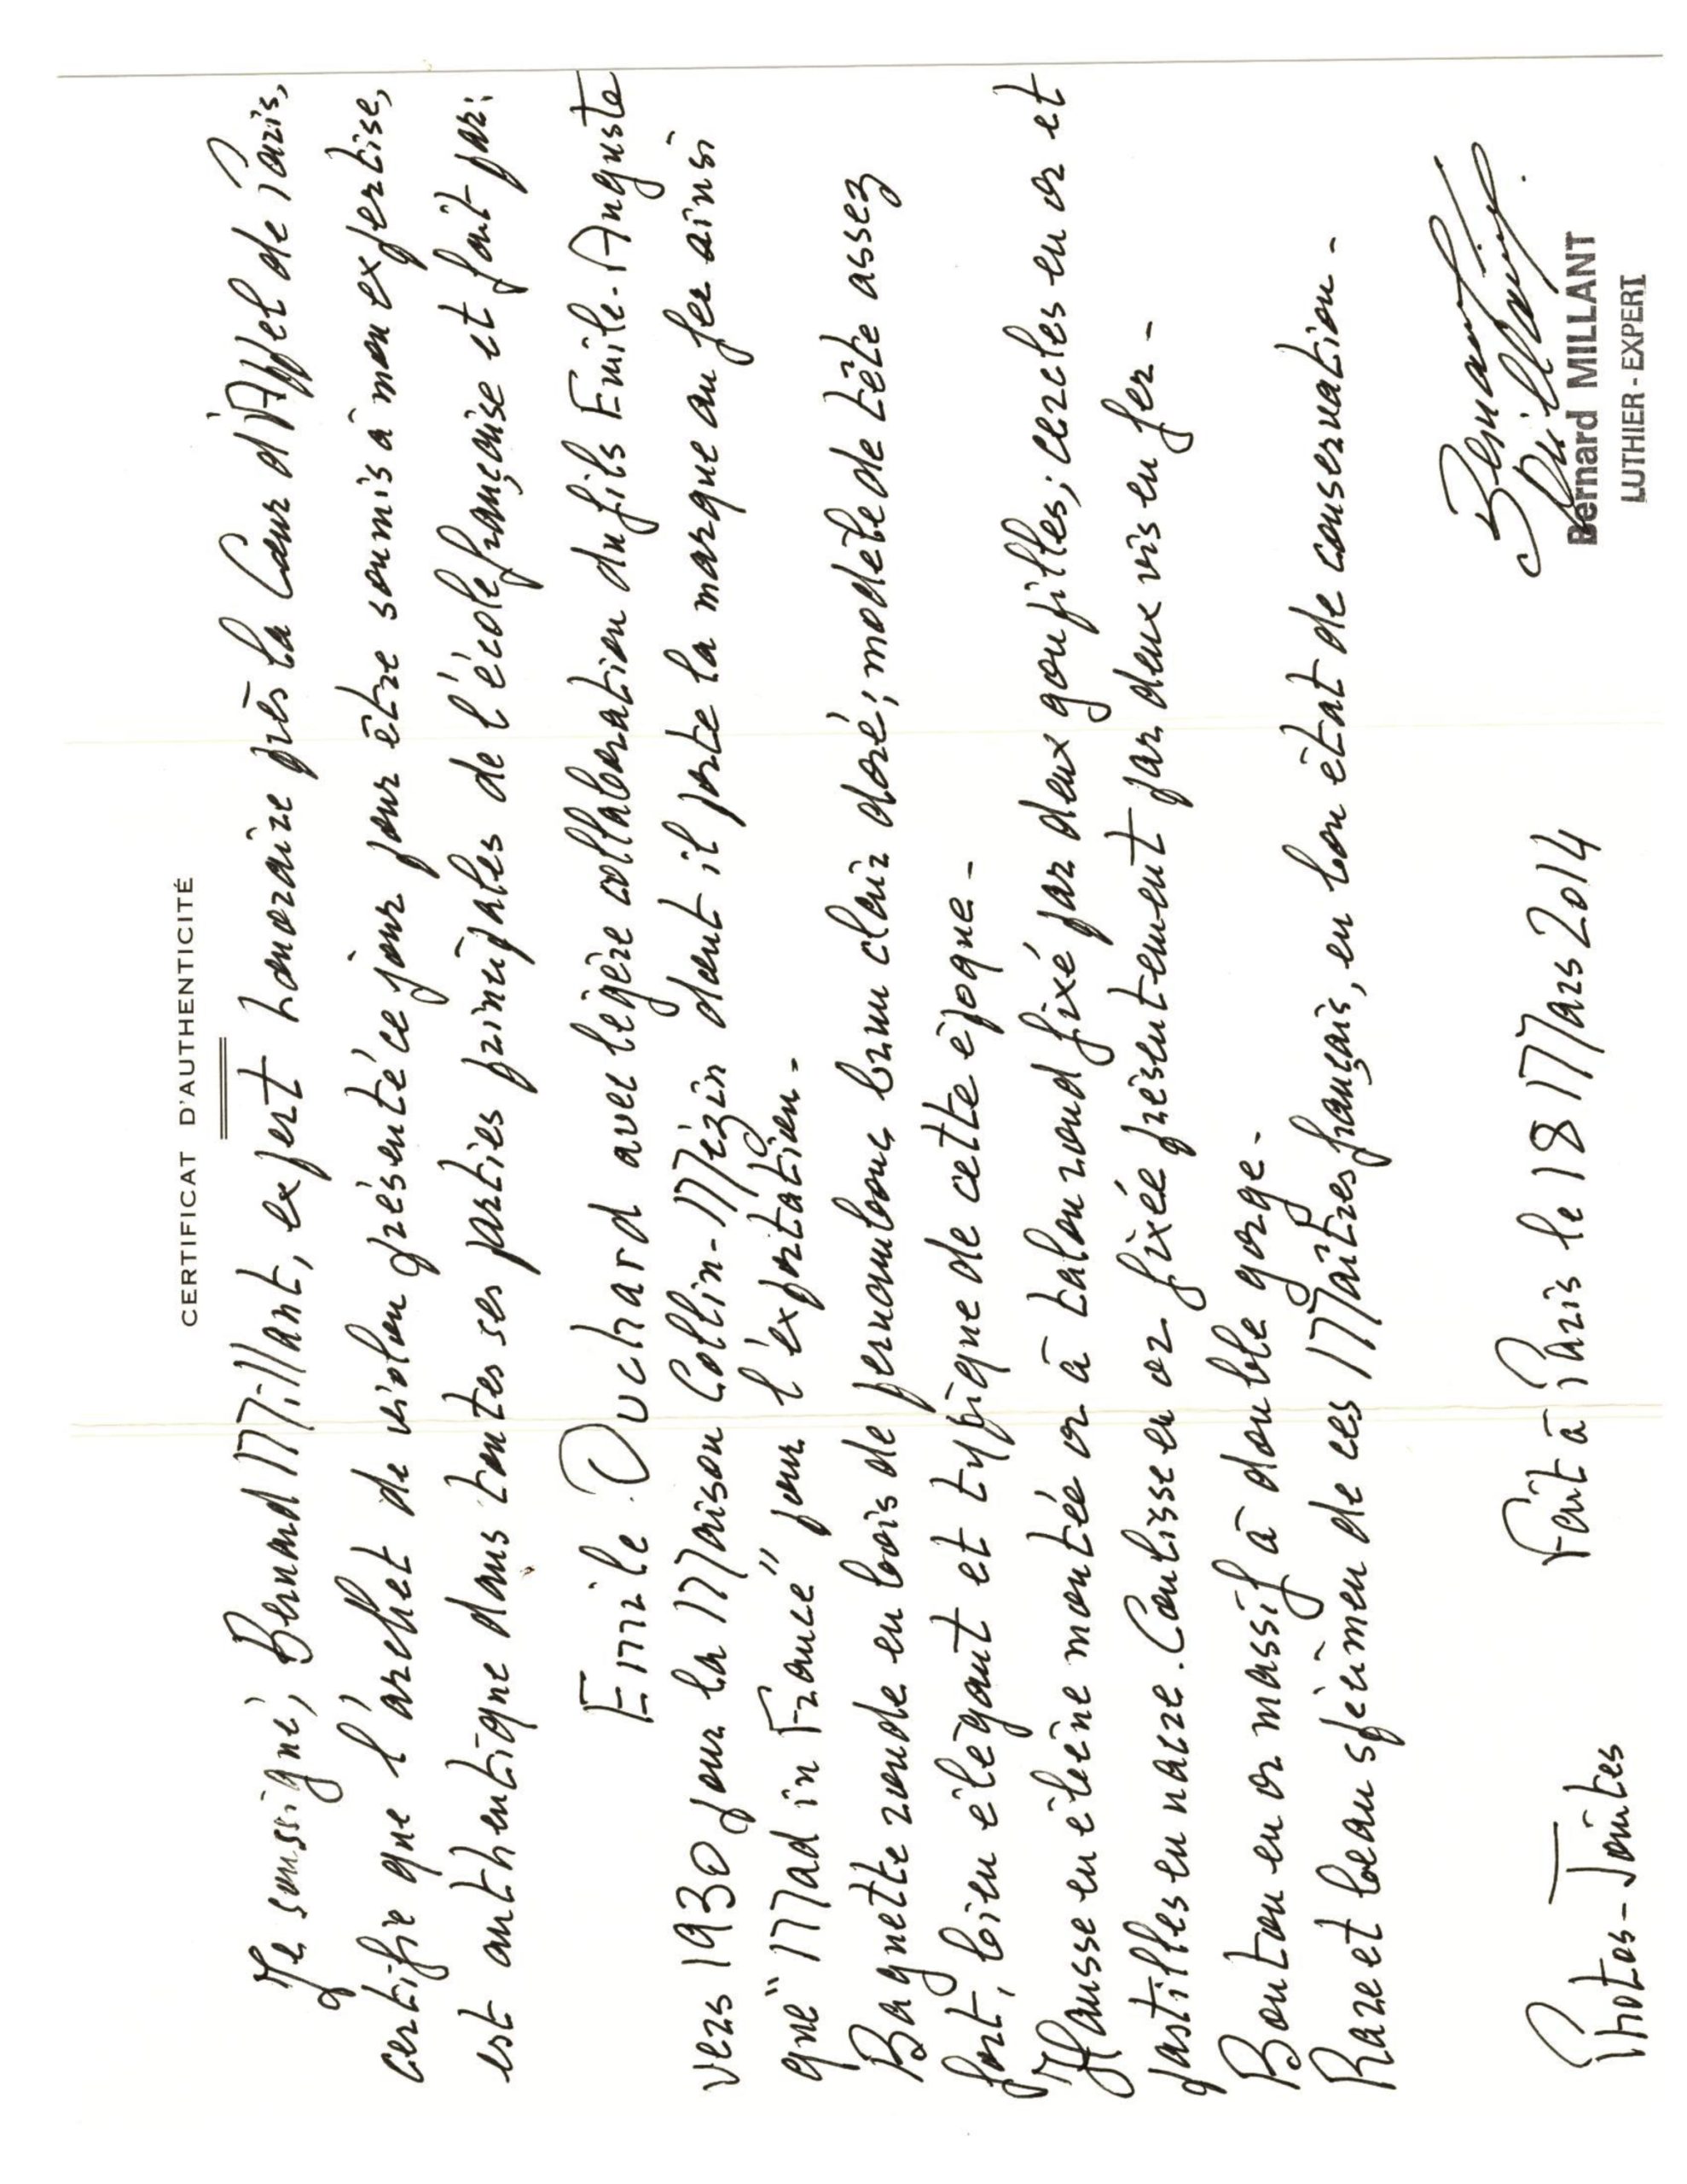 CERTIFICAT D'AUTHENTICITÉ
Je soussigné, Bernard Millant, expert honoraire près la Cour d'Appel de Paris,
certifie que l'archet de violon présenté ce jour pour être soumis à mon expertise,
est authentique dans toutes ses parties principales de l'école française et fait par:
Emile. Ouchard avec légère collaboration du fils Emile-Auguste
vers 1930 pour la Maison Collin-Mézin dont il porte la marque au fer ainsi
que "Mad in France" pour l'exportation.
Baguette ronde en bois de pernambouc brun clair doré; modèle de tête assez
fort, bien élégant et typique de cette époque-
Hausse en ébène montée or à talon rond fixé par deux goupilles; cercles en or et
pastilles en nacre. Coulisse en or fixée présentement par deux vis en fer-
Bouton en or massif à double gorge-
Rare et beau spécimen de ces Maîtres français, en bon état de conservation-
Photos-Jointes Fait à Paris le 18 Mars 2014
Bernard Millant
Bernard MILLANT
LUTHIER - EXPERT